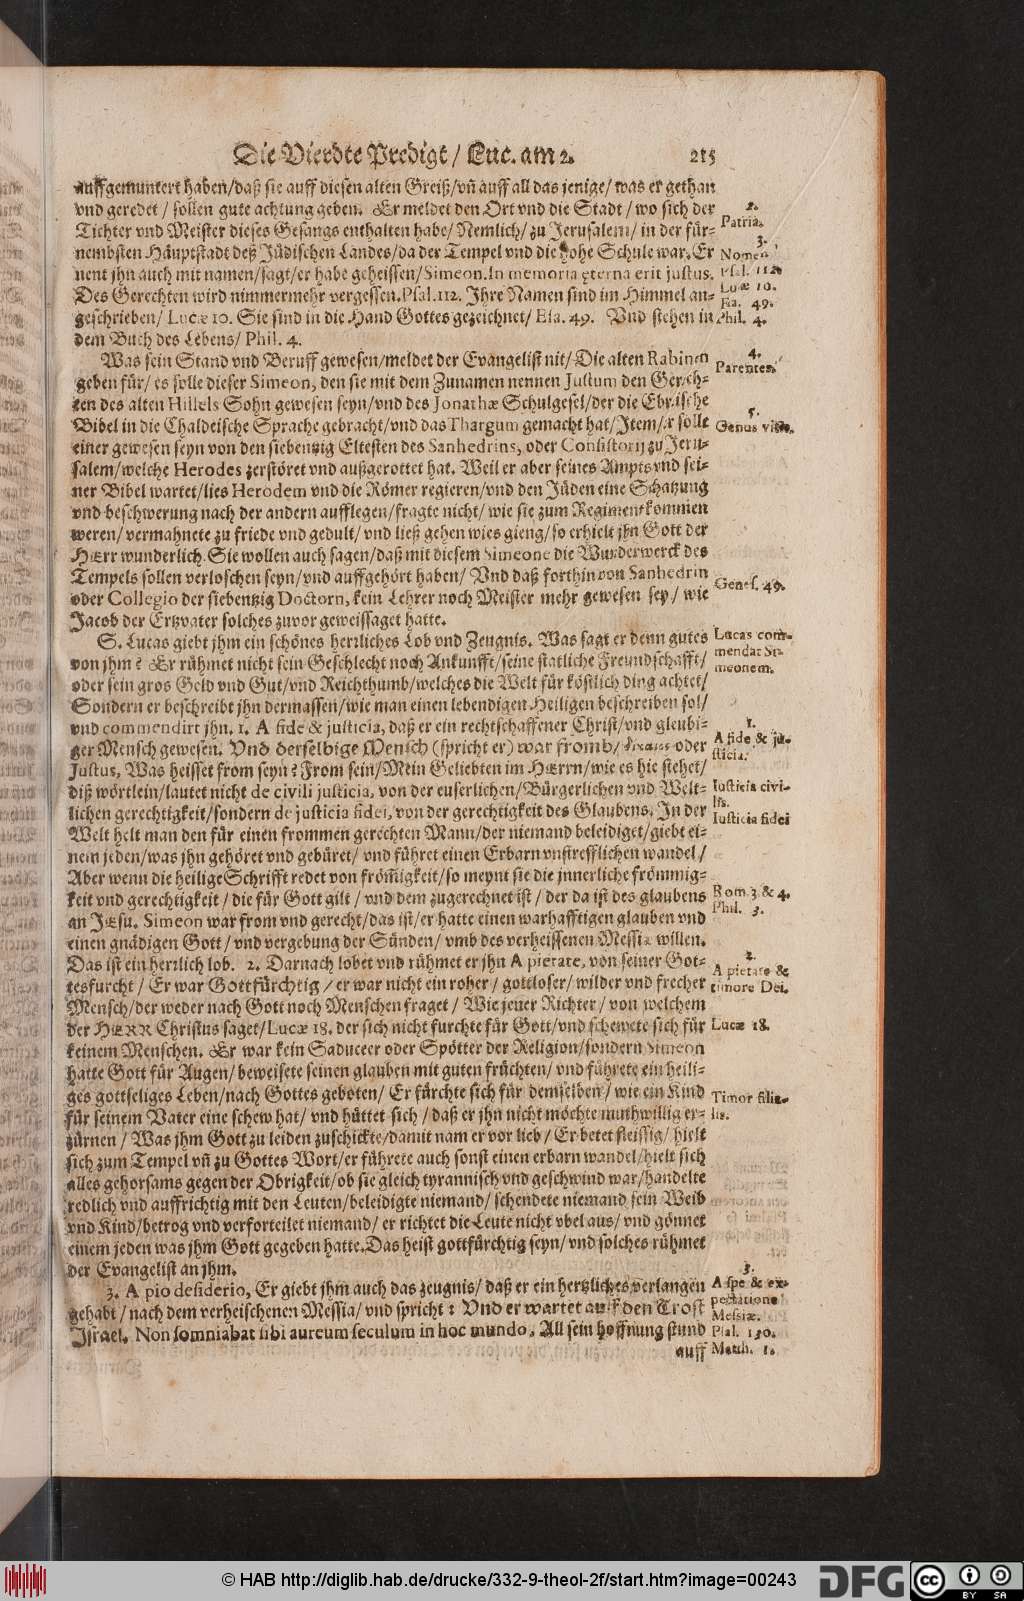 Die Vierdte Predigt / Luc. am 2. 215
auffgemuntert haben/daß sie auff diesen alten Greiß/vñ auff all das jenige/was er gethan
vnd geredet / sollen gute achtung geben. Er meldet den Ort vnd die Stadt / wo sich der
Tichter vnd Meister dieses Gesangs enthalten habe/ Nemlich/ zu Jerusalem/ in der für-
nembsten Häuptstadt deß Jüdischen Landes/da der Tempel vnd die hohe Schule war. Er
nent jhn auch mit namen/sagt/er habe geheissen/Simeon. In memoria æterna erit justus.
Des Gerechten wird nimmermehr vergessen. Psal. 112. Ihre Namen sind im Himmel an-
geschrieben/ Lucæ 10. Sie sind in die Hand Gottes gezeichnet/ Esa. 49. Vnd stehen in
dem Buch des Lebens/ Phil. 4.
2.
Patria.
3.
Nomen
Psal. 112.
Lucæ 10.
Esa. 49.
Phil. 4.
Was sein Stand vnd Beruff gewesen/meldet der Evangelist nit/ Die alten Rabinen
geben für/ es solle dieser Simeon, den sie mit dem Zunamen nennen Justum den Gerech-
ten des alten Hillels Sohn gewesen seyn/vnd des Jonathæ Schulgesel/der die Ebreische
Bibel in die Chaldeische Sprache gebracht/vnd das Thargum gemacht hat/Item/er solle
einer gewesen seyn von den siebentzig Eltesten des Sanhedrins, oder Consistorij zu Jeru-
salem/welche Herodes zerstöret vnd außgerottet hat. Weil er aber seines Ampts vnd sei-
ner Bibel wartet/lies Herodem vnd die Römer regieren/vnd den Jüden eine Schatzung
vnd beschwerung nach der andern aufflegen/fragte nicht/ wie sie zum Regiment kommen
weren/ vermahnete zu friede vnd gedult/ vnd ließ gehen wies gieng/ so erhielt jhn Gott der
HErr wunderlich. Sie wollen auch sagen/daß mit diesem Simeone die Wunderwerck des
Tempels sollen verloschen seyn/vnd auffgehört haben/ Vnd daß forthin von Sanhedrin
oder Collegio der siebentzig Doctorn, kein Lehrer noch Meister mehr gewesen sey / wie
Jacob der Ertzvater solches zuvor geweissaget hatte.
4.
Parentes.
5.
Genus vitæ.
Genes. 49.
S. Lucas giebt jhm ein schönes herrliches Lob vnd Zeugnis. Was sagt er denn gutes
von jhm? Er rühmet nicht sein Geschlecht noch Ankunfft/seine statliche Freundschafft/
oder sein gros Geld vnd Gut/vnd Reichthumb/welches die Welt für köstlich ding achtet/
Sondern er beschreibt jhn dermassen/wie man einen lebendigen Heiligen beschreiben sol/
vnd commendirt jhn. 1. A fide & justicia, daß er ein rechtschaffener Christ/vnd gleubi-
ger Mensch gewesen. Vnd derselbige Mensch (spricht er) war fromb/ δίκαιος oder
Justus, Was heisset from seyn? From sein/Mein Geliebten im HErrn/wie es hie stehet/
diß wörtlein/lautet nicht de civili justicia, von der euserlichen/Bürgerlichen vnd Welt-
lichen gerechtigkeit/sondern de justicia fidei, von der gerechtigkeit des Glaubens. In der
Welt helt man den für einen frommen gerechten Mann/der niemand beleidiget/giebt ei-
nem jeden/was jhn gehöret vnd gebüret/ vnd führet einen Erbarn vnstrefflichen wandel/
Aber wenn die heilige Schrifft redet von frömigkeit/so meynt sie die jnnerliche frömmig-
keit vnd gerechtigkeit / die für Gott gilt / vnd dem zugerechnet ist / der da ist des glaubens
an JEsu. Simeon war from vnd gerecht/das ist/er hatte einen warhafftigen glauben vnd
einen gnädigen Gott / vnd vergebung der Sünden/ vmb des verheissenen Messiæ willen.
Das ist ein herrlich lob. 2. Darnach lobet vnd rühmet er jhn A pietate, von seiner Got-
tesfurcht / Er war Gottfürchtig / er war nicht ein roher / gottloser/ wilder vnd frecher
Mensch/der weder nach Gott noch Menschen fraget / Wie jener Richter / von welchem
der HERR Christus saget/Lucæ 18. der sich nicht furchte für Gott/vnd schewete sich für
keinem Menschen. Er war kein Saduceer oder Spötter der Religion/sondern Simeon
hatte Gott für Augen/ beweisete seinen glauben mit guten früchten/ vnd führete ein heili-
ges gottseliges Leben/nach Gottes geboten/ Er fürchte sich für demselben/ wie ein Kind
für seinem Vater eine schew hat/ vnd hüttet sich / daß er jhn nicht möchte muthwillig er-
zürnen / Was jhm Gott zu leiden zuschickte/damit nam er vor lieb/ Er betet fleissig/ hielt
sich zum Tempel vñ zu Gottes Wort/er führete auch sonst einen erbarn wandel/hielt sich
alles gehorsams gegen der Obrigkeit/ob sie gleich tyrannisch vnd geschwind war/handelte
redlich vnd auffrichtig mit den Leuten/beleidigte niemand/ schendete niemand sein Weib
vnd Kind/betrog vnd verforteilet niemand/ er richtet die Leute nicht vbel aus/ vnd gönnet
einem jeden was jhm Gott gegeben hatte. Das heist gottfürchtig seyn/ vnd solches rühmet
der Evangelist an jhm.
Lucas com-
mendat Si-
meonem.
1.
A fide & ju-
sticia.
Justicia civi-
lis.
Justicia fidei
Rom. 3. & 4.
Phil. 3.
2.
A pietate &
timore Dei.
Lucæ 18.
Timor filia-
lis.
3. A pio desiderio, Er giebt jhm auch das zeugnis/ daß er ein hertzliches verlangen
gehabt / nach dem verheischenen Messia/ vnd spricht: Vnd er wartet auff den Trost
Israel. Non somniabat sibi aureum seculum in hoc mundo, All sein hoffnung stund
auff
3.
A spe & ex-
pectatione
Messiæ.
Psal. 130.
Matth. 1.
© HAB http://diglib.hab.de/drucke/332-9-theol-2f/start.htm?image=00243
DFG
cc
BY SA